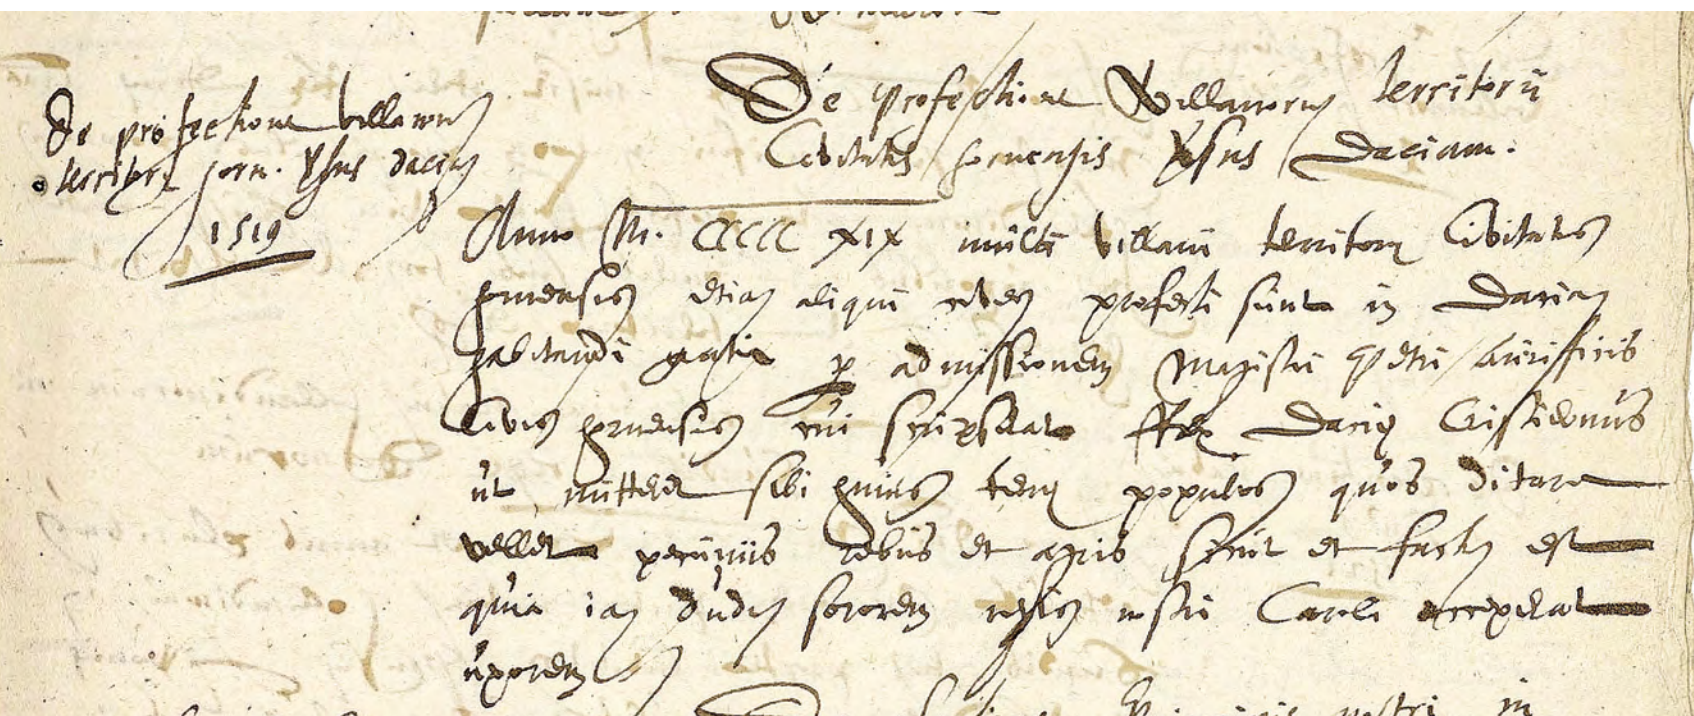 De profectione villanorum
territorii horn. versus daciam
1519
De profectione Villanorum territorii
Civitatis hornensis versus Daciam.
Anno M. CCCCC XIX multi villani territorii Civitatis
hornensis etiam aliqui cives profecti sunt in Daciam
habitandi gratia per admissionem Magistri Petri Aurificis
Civis hornensis cui scripserat Rex Dacię Cristiernus
ut mitteret sibi huius terrę populos quos ditare
vellet pecuniis rebus et agris sicut et factum est
quia iam dudum sororem regis nostri Caroli acceperat
uxorem
nostri in